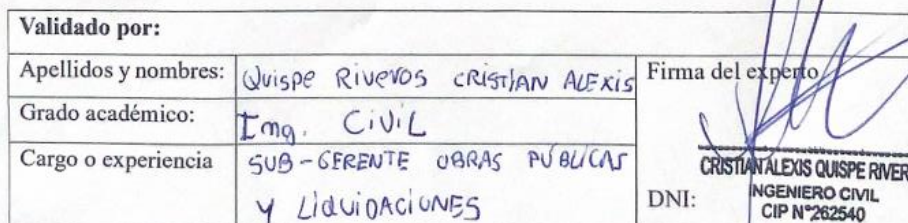 Validado por:
Apellidos y nombres: Quispe Riveros CRISTIAN ALEXIS
Firma del experto
Grado académico: Ing. CiViL
Cargo o experiencia SUB-GERENTE OBRAS PÚBLICAS
Y LiQUiDACiONES
CRISTIAN ALEXIS QUISPE RIVER
INGENIERO CIVIL
DNI: CIP N°262540